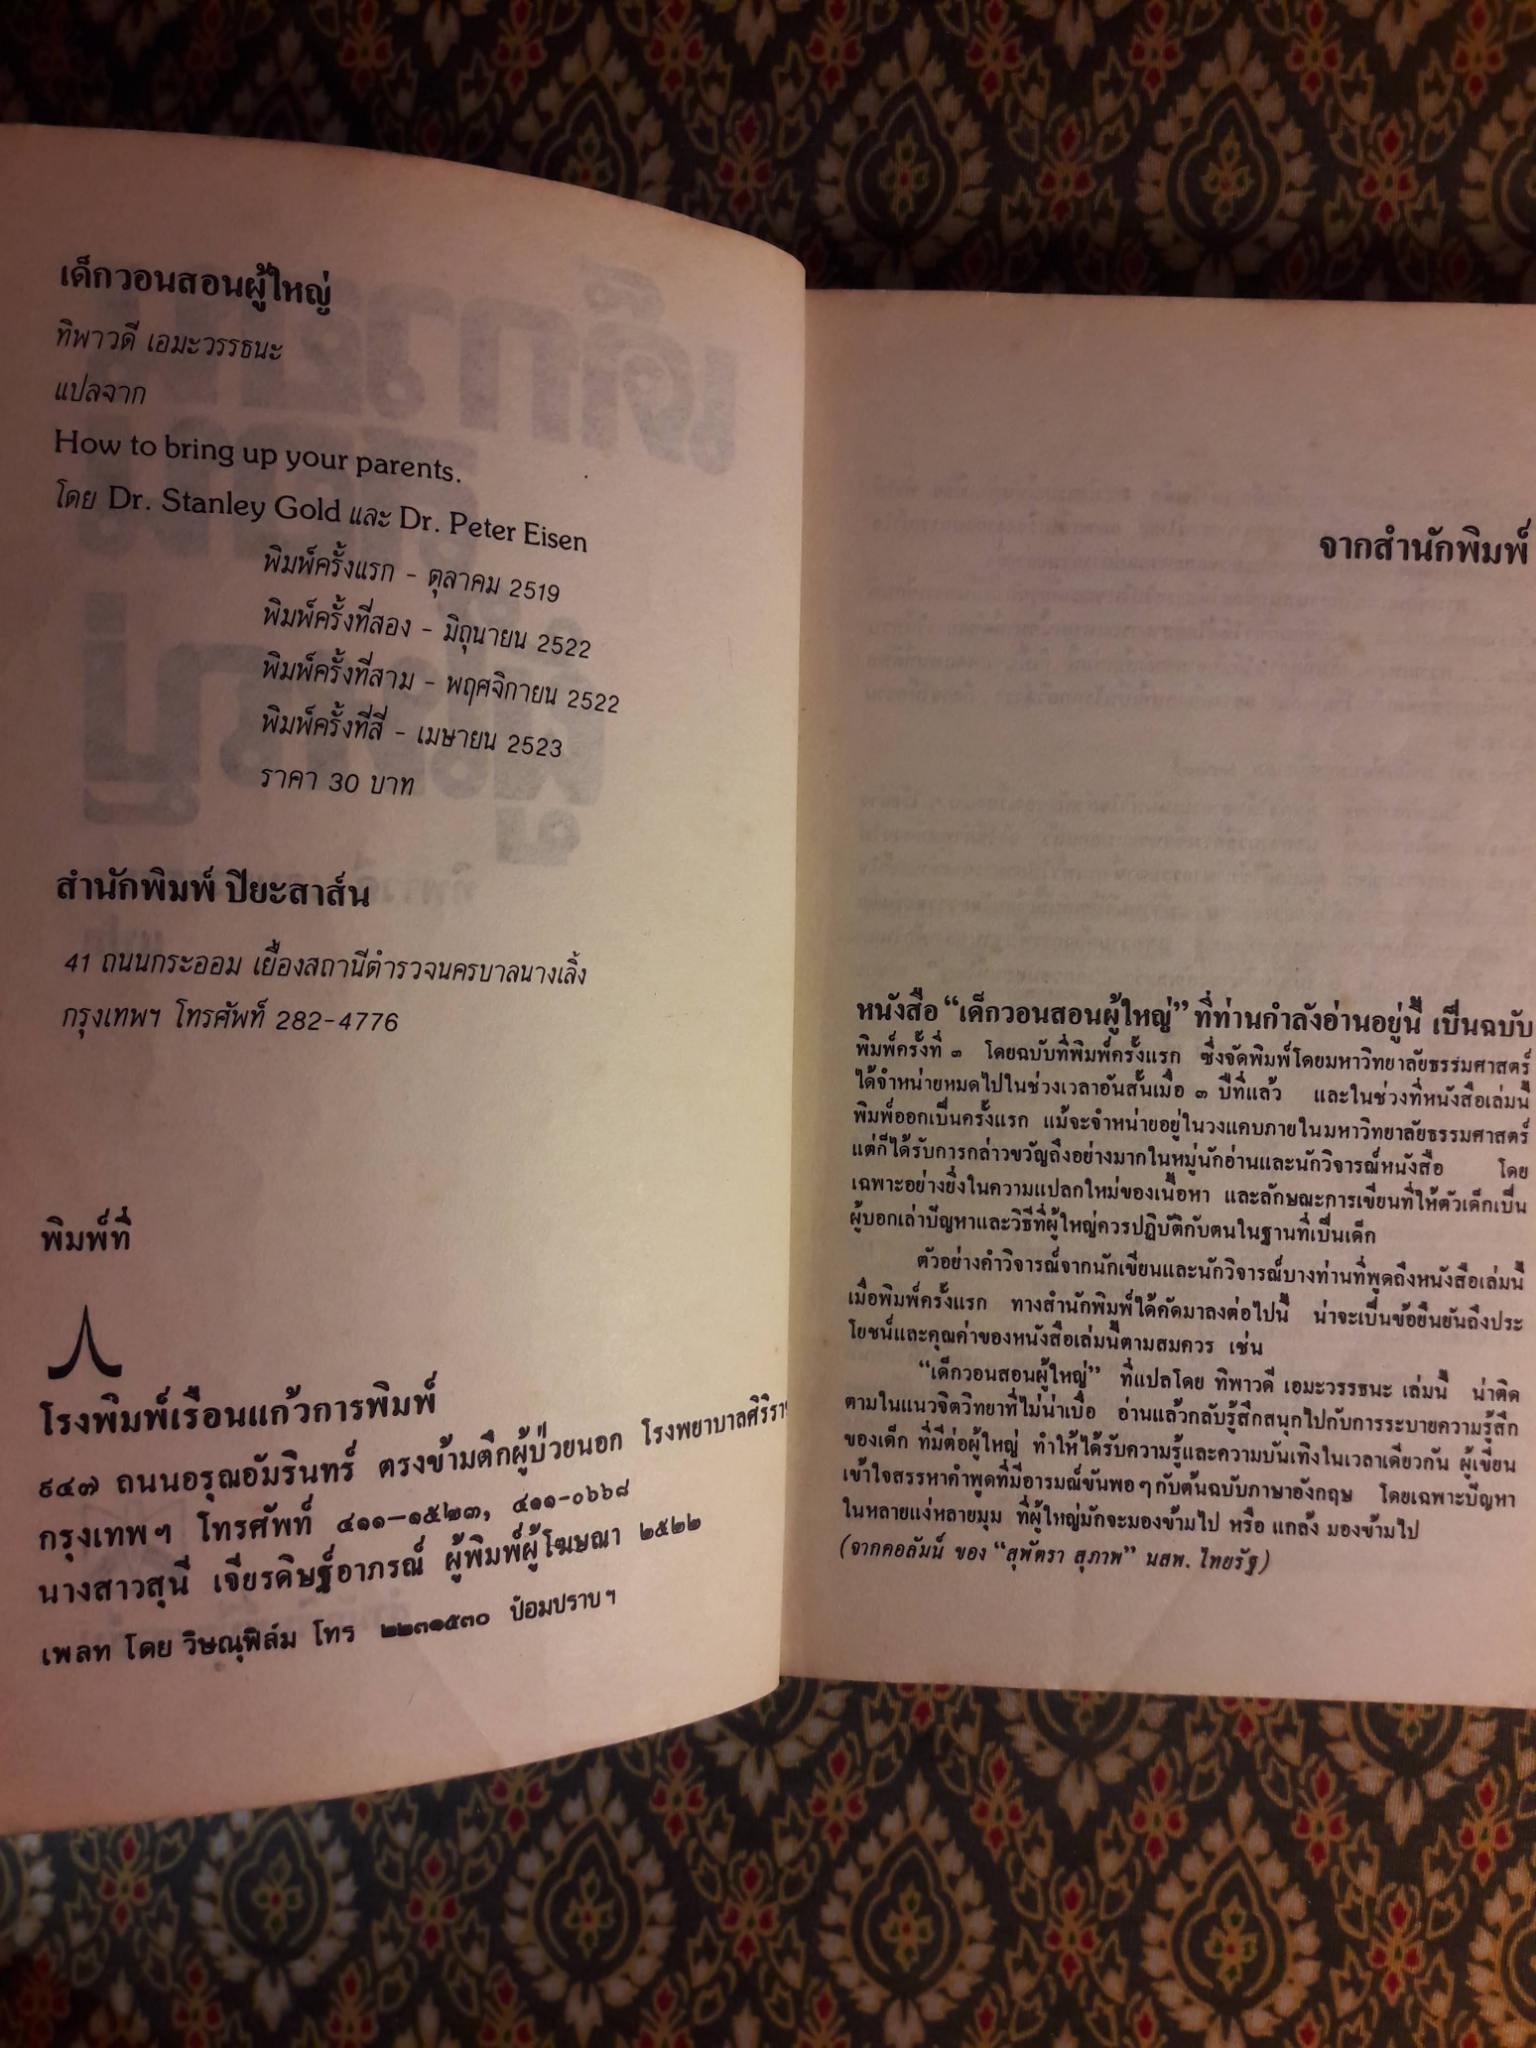 เด็กวอนสอนผู้ใหญ่
ทิพาวดี เอมะวรรธนะ
แปลจาก
How to bring up your parents.
โดย Dr. Stanley Gold และ Dr. Peter Eisen
พิมพ์ครั้งแรก - ตุลาคม 2519
พิมพ์ครั้งที่สอง - มิถุนายน 2522
พิมพ์ครั้งที่สาม - พฤศจิกายน 2522
พิมพ์ครั้งที่สี่ - เมษายน 2523
ราคา 30 บาท
สำนักพิมพ์ ปิยะสาส์น
41 ถนนกระออม เยื้องสถานีตำรวจนครบาลนางเลิ้ง
กรุงเทพฯ โทรศัพท์ 282-4776
พิมพ์ที่
โรงพิมพ์เรือนแก้วการพิมพ์
๙๔๗ ถนนอรุณอัมรินทร์ ตรงข้ามตึกผู้ป่วยนอก โรงพยาบาลศิริรา
กรุงเทพฯ โทรศัพท์ ๔๑๑–๑๕๒๓, ๔๑๑–๐๖๖๘
นางสาวสุนี เจียรดิษฐ์อาภรณ์ ผู้พิมพ์ผู้โฆษณา ๒๕๒๒
เพลท โดย วิษณุฟิล์ม โทร ๒๒๓๑๕๓๐ ป้อมปราบฯ
จากสำนักพิมพ์
หนังสือ “เด็กวอนสอนผู้ใหญ่” ที่ท่านกำลังอ่านอยู่นี้ เป็นฉบับ
พิมพ์ครั้งที่ ๓ โดยฉบับที่พิมพ์ครั้งแรก ซึ่งจัดพิมพ์โดยมหาวิทยาลัยธรรมศาสตร์
ได้จำหน่ายหมดไปในช่วงเวลาอันสั้นเมื่อ ๓ ปีที่แล้ว และในช่วงที่หนังสือเล่มนี้
พิมพ์ออกเป็นครั้งแรก แม้จะจำหน่ายอยู่ในวงแคบภายในมหาวิทยาลัยธรรมศาสตร์
แต่ก็ได้รับการกล่าวขวัญถึงอย่างมากในหมู่นักอ่านและนักวิจารณ์หนังสือ โดย
เฉพาะอย่างยิ่งในความแปลกใหม่ของเนื้อหา และลักษณะการเขียนที่ให้ตัวเด็กเป็น
ผู้บอกเล่าปัญหาและวิธีที่ผู้ใหญ่ควรปฏิบัติกับตนในฐานที่เป็นเด็ก
ตัวอย่างคำวิจารณ์จากนักเขียนและนักวิจารณ์บางท่านที่พูดถึงหนังสือเล่มนี้
เมื่อพิมพ์ครั้งแรก ทางสำนักพิมพ์ได้คัดมาลงต่อไปนี้ น่าจะเป็นข้อยืนยันถึงประ
โยชน์และคุณค่าของหนังสือเล่มนี้ตามสมควร เช่น
“เด็กวอนสอนผู้ใหญ่” ที่แปลโดย ทิพาวดี เอมะวรรธนะ เล่มนี้ น่าติด
ตามในแนวจิตวิทยาที่ไม่น่าเบื่อ อ่านแล้วกลับรู้สึกสนุกไปกับการระบายความรู้สึก
ของเด็ก ที่มีต่อผู้ใหญ่ ทำให้ได้รับความรู้และความบันเทิงในเวลาเดียวกัน ผู้เขียน
เข้าใจสรรหาคำพูดที่มีอารมณ์ขันพอๆกับต้นฉบับภาษาอังกฤษ โดยเฉพาะปัญหา
ในหลายแง่หลายมุม ที่ผู้ใหญ่มักจะมองข้ามไป หรือ แกล้ง มองข้ามไป
(จากคอลัมน์ ของ “สุพัตรา สุภาพ” นสพ. ไทยรัฐ)